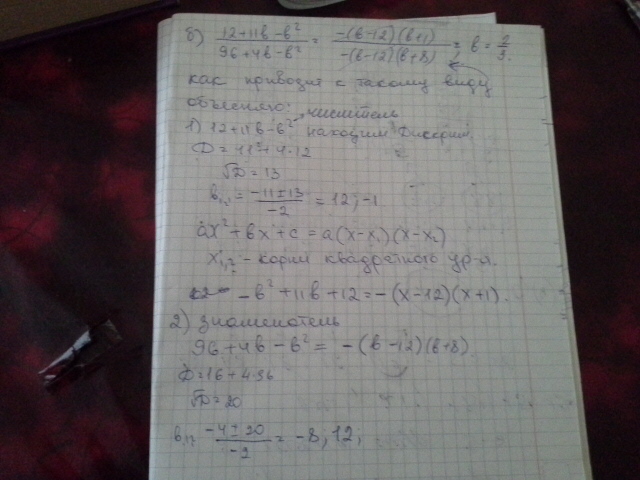 б) (12+11в-в²)/(96+4в-в²) = (-(в-12)(в+1))/(-(в-12)(в+8)) ; в =
как приводит к такому виду
объясняю:
числитель
1) 12+11в-в² находим Дискрим.
D = 11²+4·12
√D = 13
в₁,₂ = (-11±13)/(-2) = 12; -1
ax²+bx+c = a(x-x₁)(x-x₂)
x₁,₂ - корни квадратного ур-я.
-в²+11в+12 = -(x-12)(x+1).
2) знаменатель
96+4в-в² = -(в-12)(в+8)
D = 16+4·96
√D = 20
в₁,₂ (-4±20)/(-2) = -8, 12;